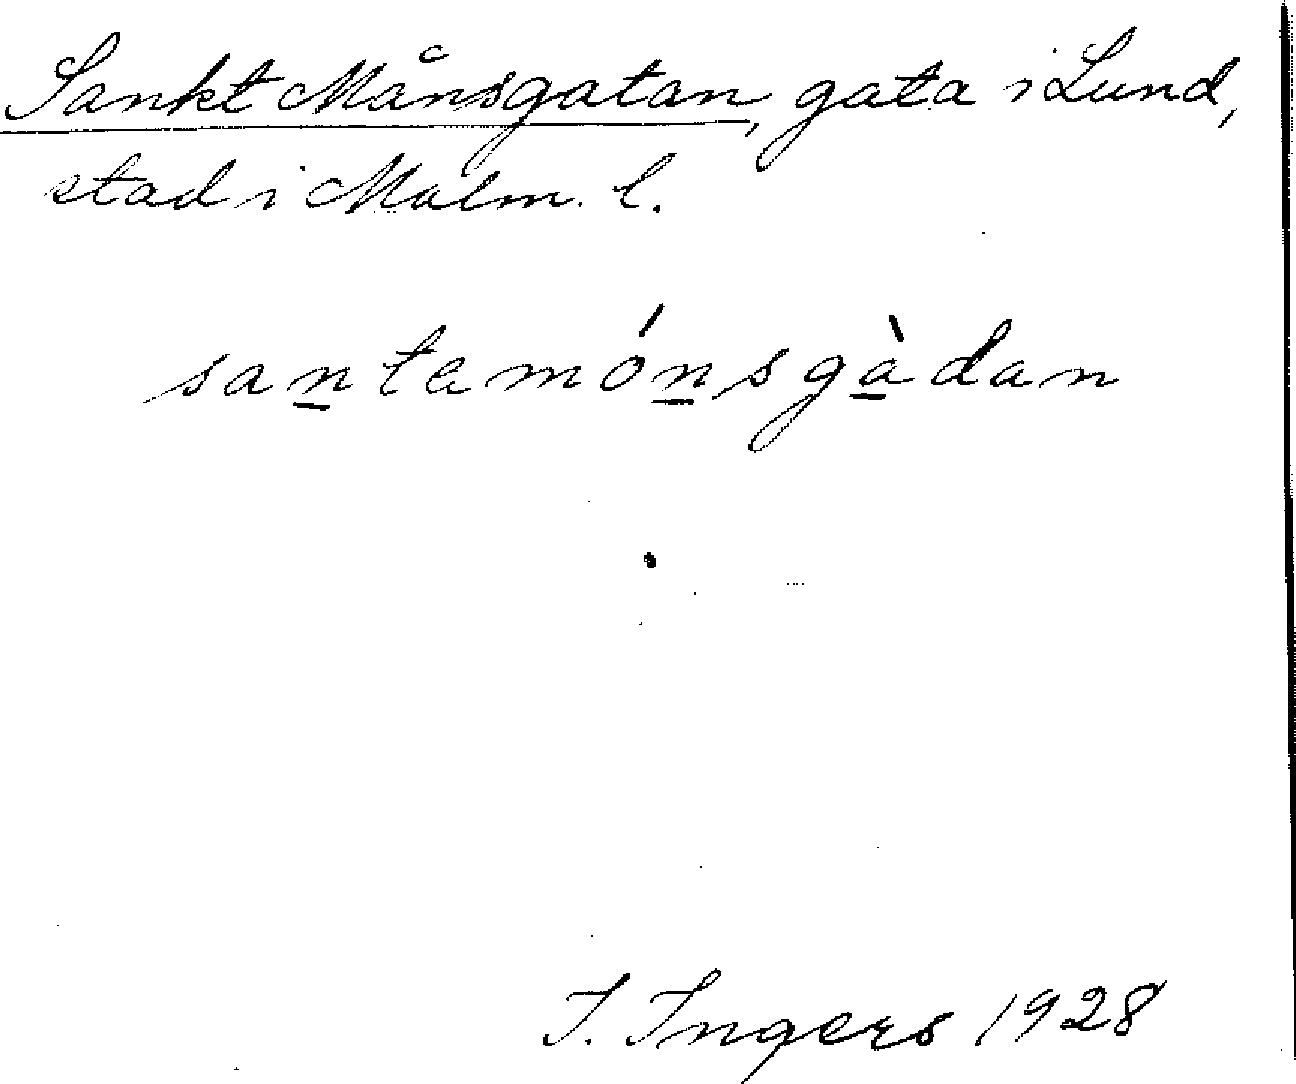 Sankt Månsgatan, gata i Lund,
stad i Malm. l.
san̲tamón̲sgà̲dan
I. Ingers 1928